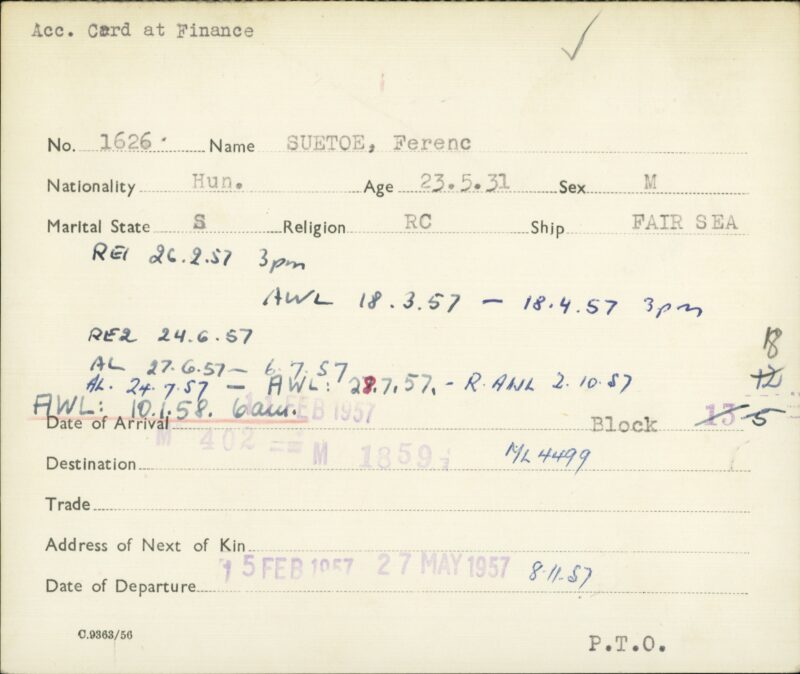 Acc. Card at Finance
No. 1626 Name SUETOE, Ferenc
Nationality Hun. Age 23.5.31 Sex M
Marital State S Religion RC Ship FAIR SEA
RE1 26.2.57 3pm
AWL 18.3.57 — 18.4.57 3pm
RE2 24.6.57
18
AL 27.6.57 — 6.7.57
12
AL. 24.7.57 — AWL: 28.7.57. - R. AWL 2.10.57
AWL: 10.1.58. 6am. 11 FEB 1957
Date of Arrival Block 13 5
M 402 M 1859
Destination ML4499
Trade
Address of Next of Kin
15 FEB 1957 27 MAY 1957 8.11.57
Date of Departure
C.9363/56
P.T.O.